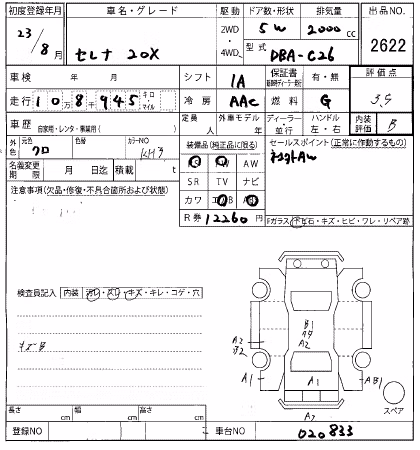 初度登録年月 車名・グレード 駆動 ドア数・形状 排気量 出品NO.
23/8月 セレナ 20X 2WD・4WD 5W 2000cc 2622
型式 DBA-C26
車検 年 月 シフト IA 保証書 有・無 評価点
走行 108,945 キロ マイル 冷房 AAC 燃料 G 3.5
車歴 自家用・レンタ・事業用( ) 定員 人 外車モデル 年 ディーラー・並行 ハンドル 左・右 内装評価 B
外色 元色 クロ 色替 カラーNO KH3 装備品(純正品に限る) セールスポイント(正常に作動するもの)
名義変更期限 月 日迄 積載 t PS PW AW
SR TV ナビ
注意事項(欠品・修復・不具合箇所および状態) カワ エアB
R券 12260円 Fガラス・トビ石・キズ・ヒビ・ワレ・リペア跡
検査員記入 内装 汚レ・スレ・キズ・キレ・コゲ・穴
キズB
B1
A4
A2
A2
B2
A1
A1
AB1
A2
スペア
長さ cm 幅 cm 高さ cm
登録NO 車台NO 020833